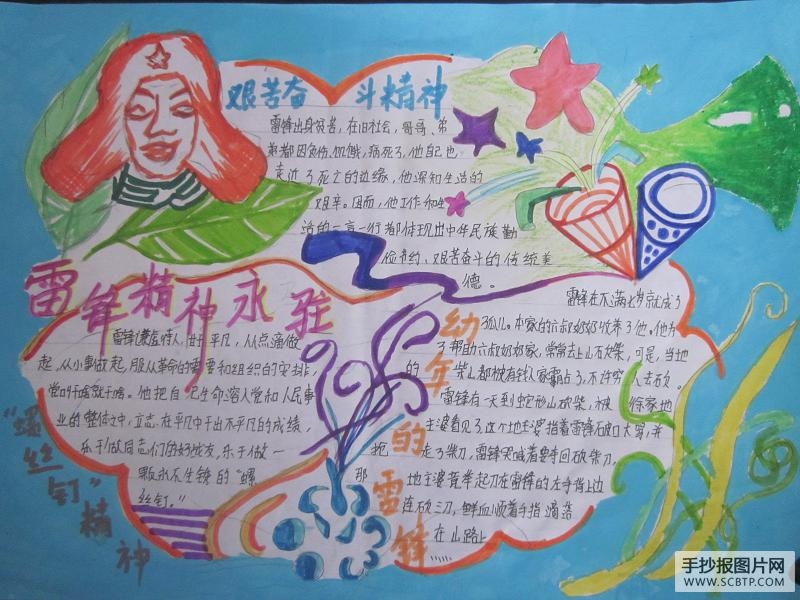 艰苦奋斗精神
雷锋出身贫苦，在旧社会，哥哥、弟
弟都因负伤、饥饿，病死了，他自己也
走过了死亡的边缘，他深知生活的
艰辛。因而，他工作和生
活的一言一行都体现出中华民族勤
俭节约、艰苦奋斗的传统美
德。
雷锋精神永驻
雷锋谦虚待人，甘于平凡，从点滴做
起，从小事做起，服从革命的需要和组织的安排，
党叫干啥就干啥。他把自己生命溶入党和人民事
业的整体之中，立志在平凡中干出不平凡的成绩，
乐于做同志们的好战友，乐于做一
颗永不生锈的“螺
丝钉。”
“螺丝钉”精神
幼年的雷锋
雷锋在不满七岁就成了
孤儿。本家的六叔奶奶收养了他。他为
了帮助六叔奶奶家，常常去上山砍柴，可是，当地
的柴山都被有钱人家霸占了，不许穷人去砍。
雷锋有一天到蛇形山砍柴，被徐家地
主婆看见了，这个地主婆指着雷锋破口大骂，并
抢走了柴刀，雷锋哭喊着要夺回砍柴刀，
那地主婆竟举起刀在雷锋的左手背上边
连砍三刀，鲜血顺着手指滴落
在山路上……
手抄报图片网
WWW.SCBTP.COM